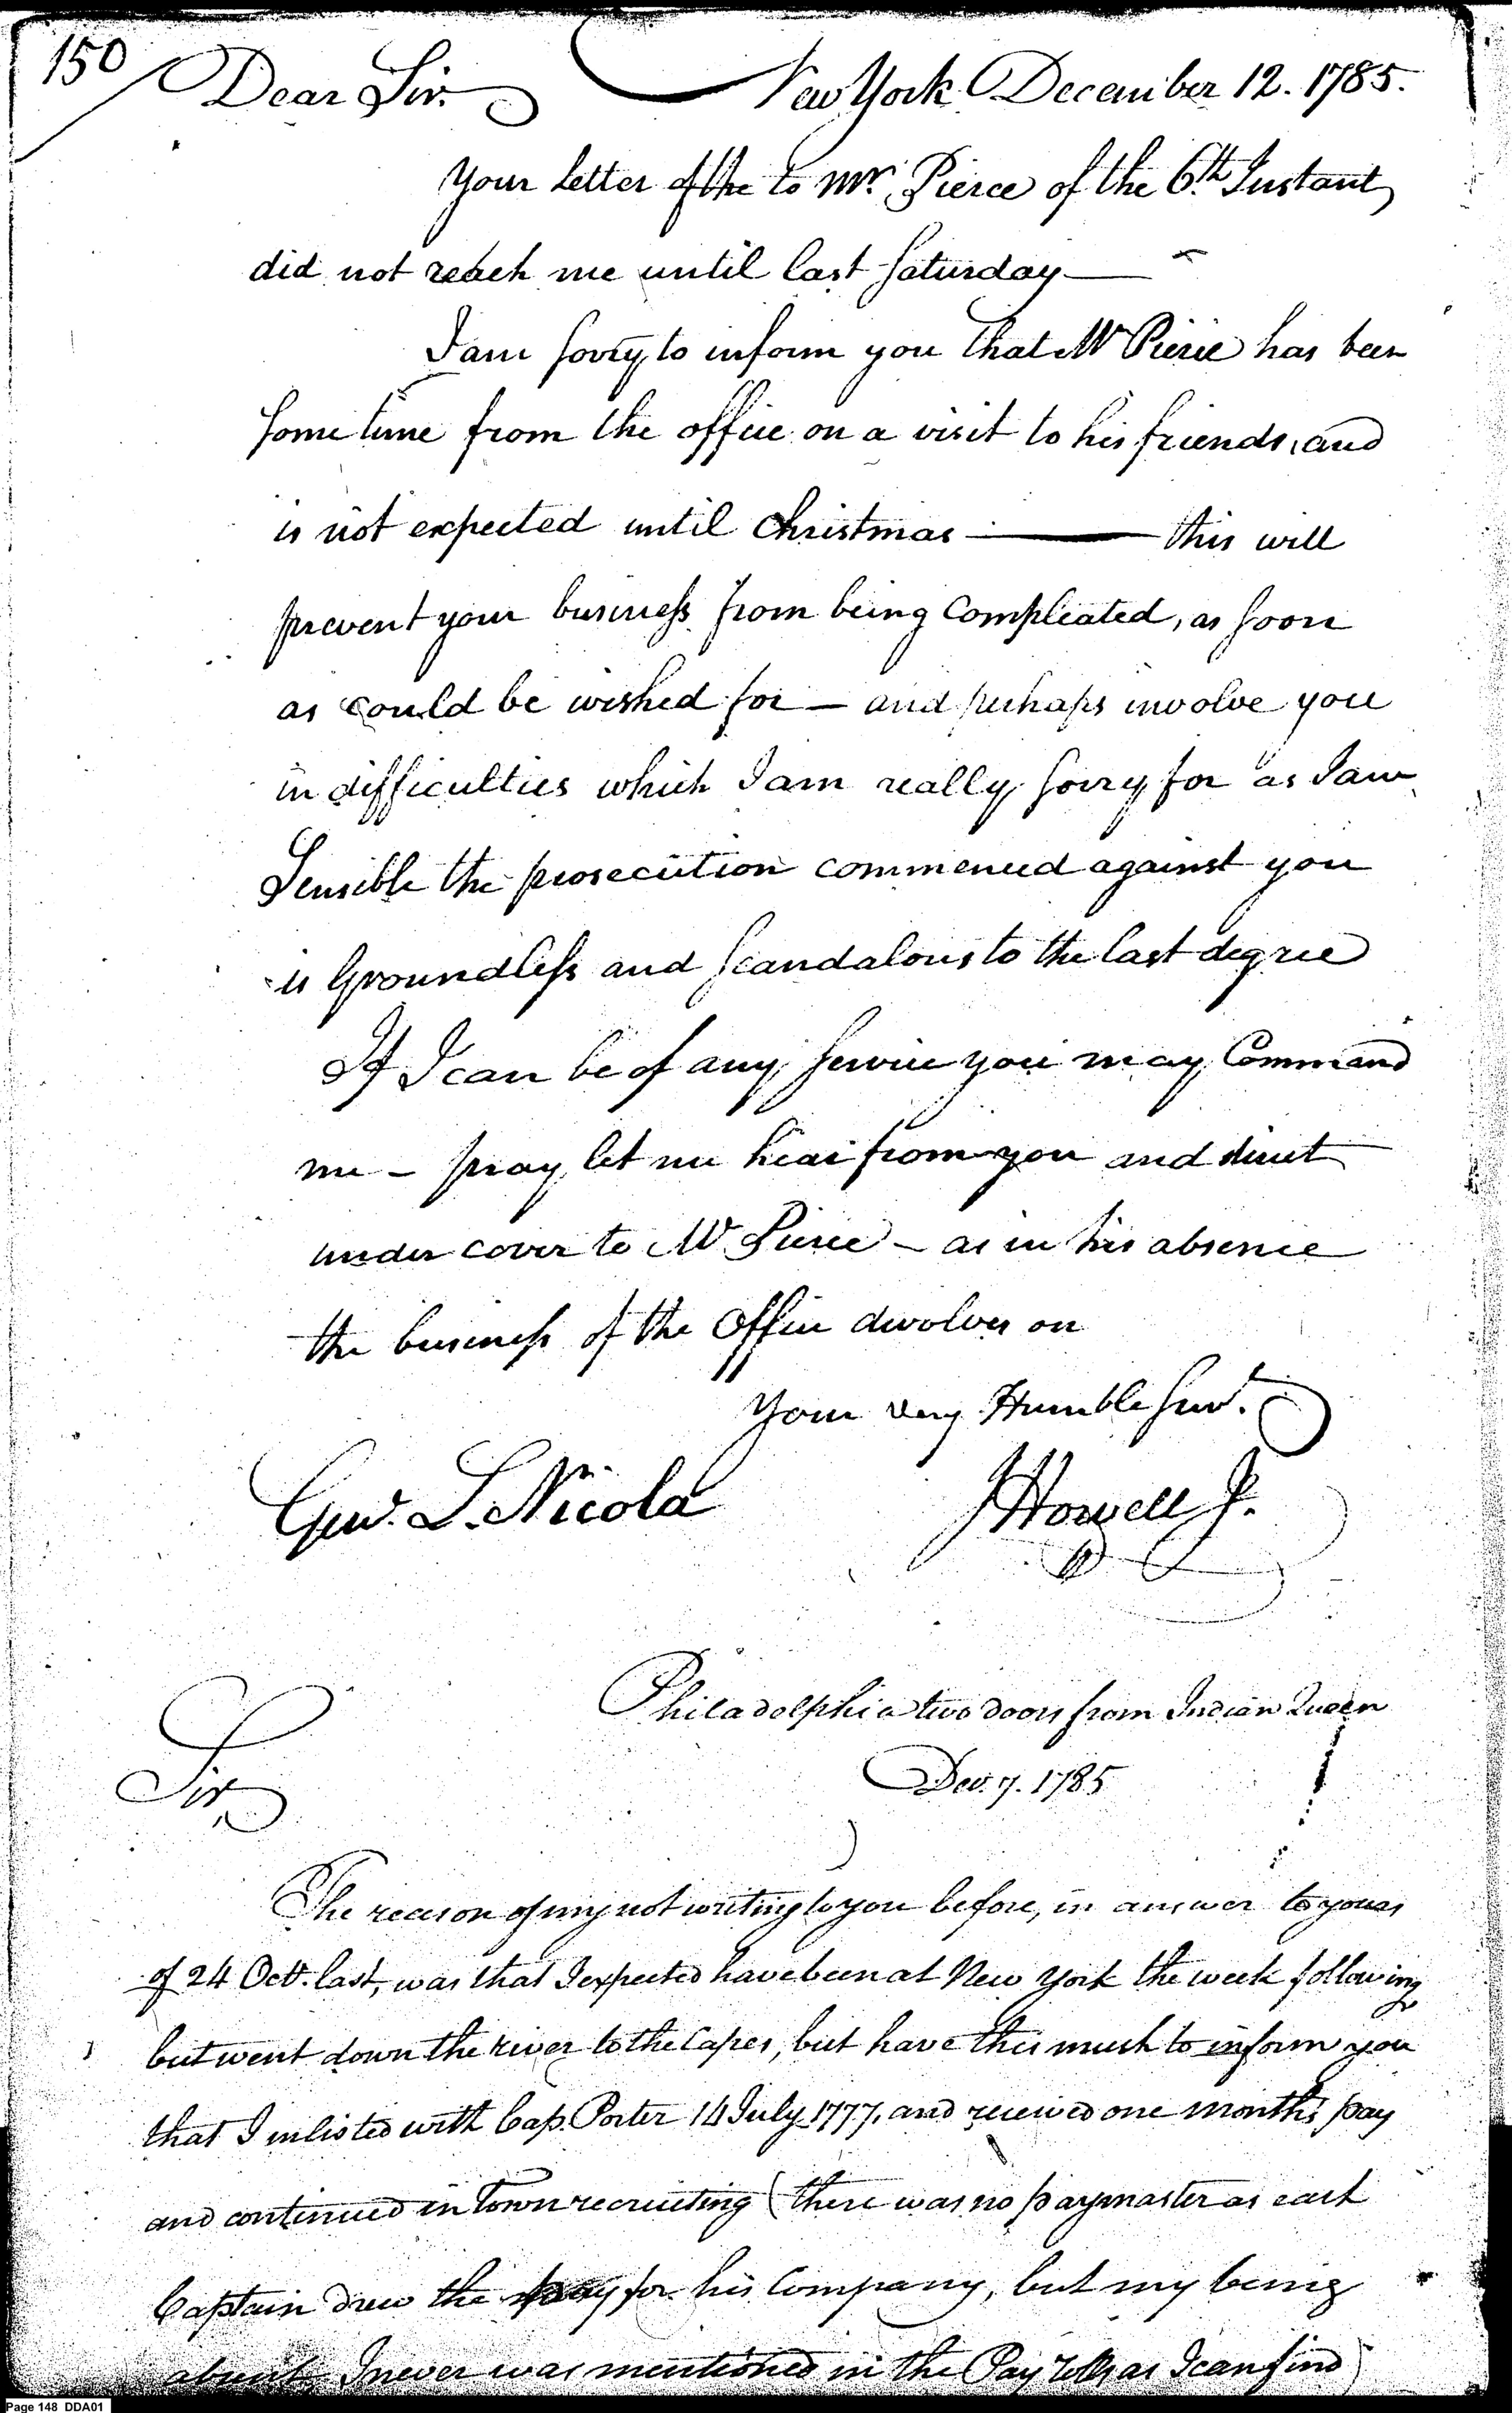 150
Dear Sir. New York December 12. 1785.
Your letter of the to Mr. Pierce of the 6th Instant
did not reach me until last Saturday —
I am sorry to inform you that Mr Pierce has been
some time from the office on a visit to his friends, and
is not expected until Christmas — this will
prevent your business from being Compleated, as soon
as could be wished for — and perhaps involve you
in difficulties which I am really sorry for as I am
Sensible the prosecution commenced against you
is Groundless and scandalous to the last degree
If I can be of any service you may Command
me — pray let me hear from you and direct
under cover to Mr Pierce — as in his absence
the business of the Office devolves on
Your very Humble Servt.
Genl. L. Nicola JHowell Jr.
Philadelphia two doors from Indian Queen
Sir Dec. 7. 1785
The reason of my not writing to you before, in answer to yours
of 24 Octr. last, was that I expected have been at New York the week following
but went down the river to the Capes, but have this much to inform you
that I inlisted with Cap. Porter 14 July 1777, and received one months pay
and continued in Town recruiting (there was no paymaster as each
Captain drew the pay for his Company, but my being
absent I never was mentioned in the Pay Rolls as I can find)
Page 148 DDA01